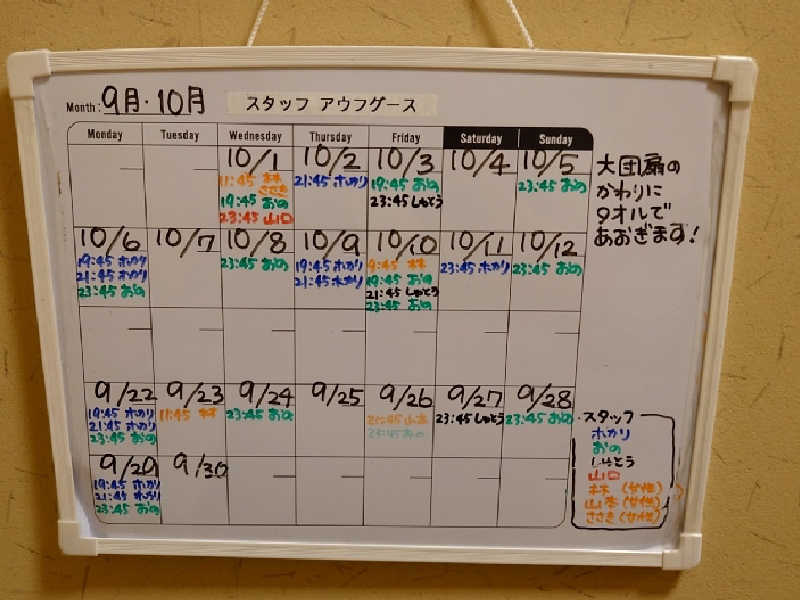 Month: 9月・10月 スタッフ アウフグース
Monday Tuesday Wednesday Thursday Friday Saturday Sunday
10/1 10/2 10/3 10/4 10/5
11:45 林 21:45 ホカリ 19:45 おの 23:45 おの
ささき 23:45 しゅとう
19:45 おの
23:45 山口
大団扇の
かわりに
タオルで
あおぎます!
10/6 10/7 10/8 10/9 10/10 10/11 10/12
19:45 ホカリ 23:45 おの 19:45 ホカリ 9:45 林 23:45 ホカリ 23:45 おの
21:45 ホカリ 21:45 ホカリ 19:45 おの
23:45 おの 21:45 しゅとう
23:45 おの
9/22 9/23 9/24 9/25 9/26 9/27 9/28
19:45 ホカリ 11:45 林 23:45 おの 21:45 山本 23:45 しゅとう 23:45 おの
21:45 ホカリ 23:45 おの
23:45 おの
9/29 9/30
19:45 ホカリ
21:45 ホカリ
23:45 おの
スタッフ
ホカリ
おの
しゅとう
山口
林 (女性)
山本 (女性)
ささき (女性)